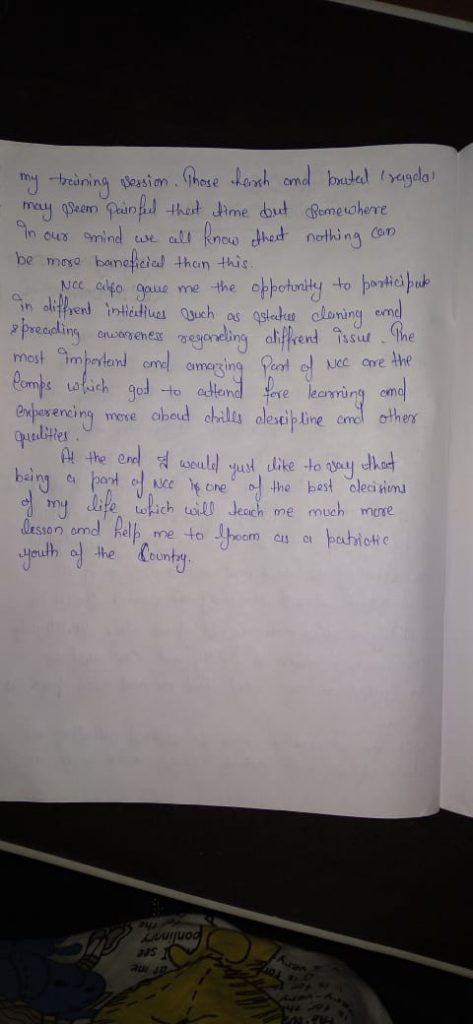 my training session. Those harsh and brutal (ragda)
may seem painful that time but somewhere
in our mind we all know that nothing can
be more baneficial than this.
NCC also gave me the oppotunity to participate
in diffrent intiatives such as statue claning and
spreading awareness regarding diffrent issue. The
most important and amazing part of NCC are the
Camps which god to attend fore learning and
experencing more about drills descipline and other
qualities.
At the end I would just like to say that
being a part of NCC is one of the best decisions
of my life which will teach me much more
lesson and help me to groom as a patriotic
youth of the Country.